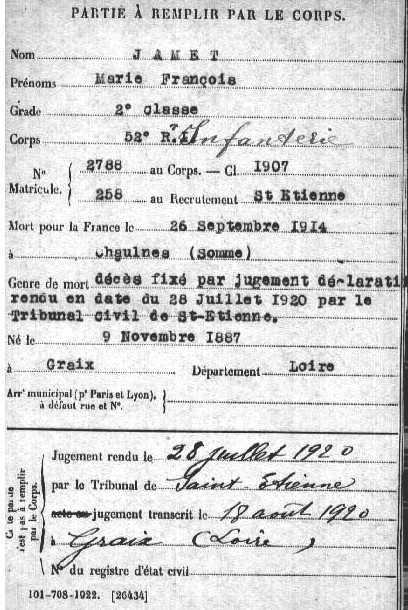 PARTIE À REMPLIR PAR LE CORPS.
Nom JAMET
Prénoms Marie François
Grade 2e classe
Corps 52e R.T. Infanterie
No 2788 au Corps. — Cl. 1907
Matricule. 258 au Recrutement St Etienne
Mort pour la France le 26 Septembre 1914
à Chaulnes (Somme)
Genre de mort décès fixé par jugement déclarati
rendu en date du 28 Juillet 1920 par le
Tribunal Civil de St-Etienne.
Né le 9 Novembre 1887
à Graix Département Loire
Arrt municipal (pr Paris et Lyon),
à défaut rue et No.
Cette partie
n'est pas à remplir
par le Corps.
Jugement rendu le 28 juillet 1920
par le Tribunal de Saint Etienne
acte ou jugement transcrit le 18 août 1920
à Graix (Loire)
No du registre d'état civil
101-708-1922. [26434]